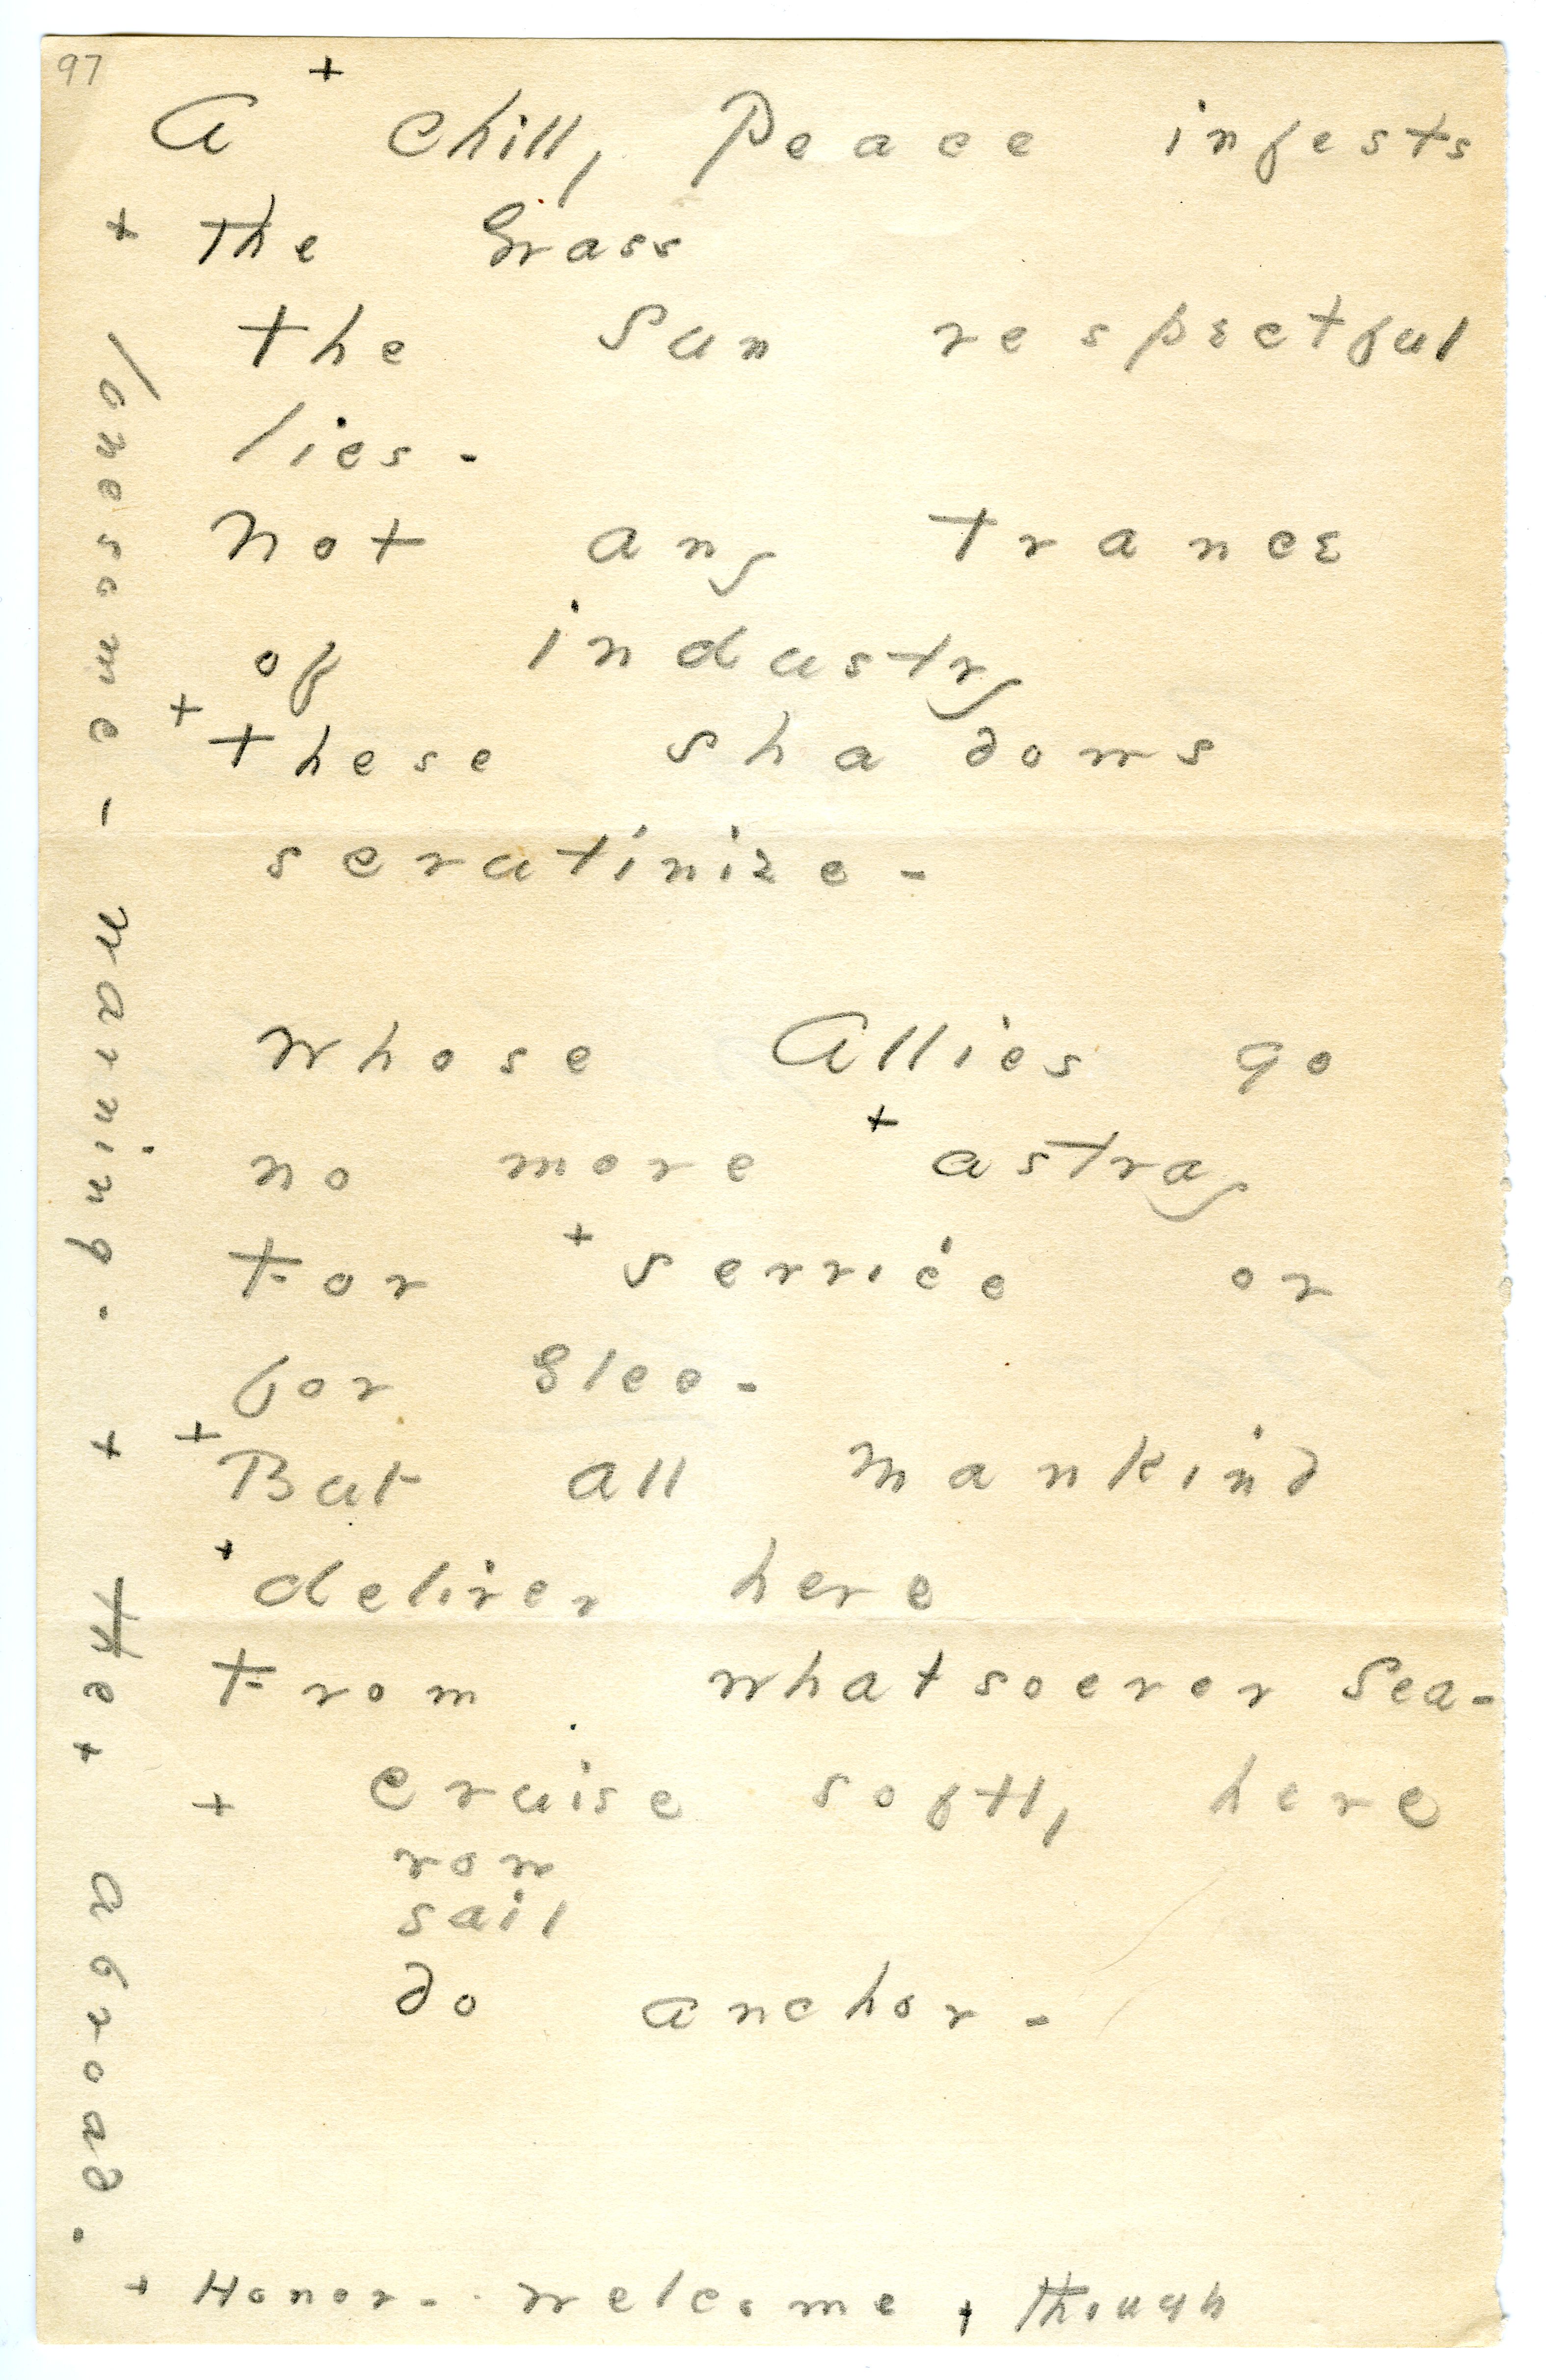 97
+
A Chilly Peace infests
the Grass
the Sun respectful
lies -
Not any trance
of industry
+ these shadows
scrutinize -
Whose Allies go
no more + astray
For + service or
for Glee -
+ But all mankind
+ deliver here
From whatsoever Sea -
+ cruise softly here
row
sail
do anchor -
+ Honor - welcome + Though
+ lonesome - warning. + The + abroad.